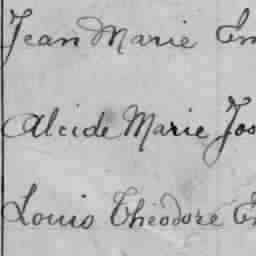 Jean Marie Em
Alcide Marie Jos
Louis Théodore Er